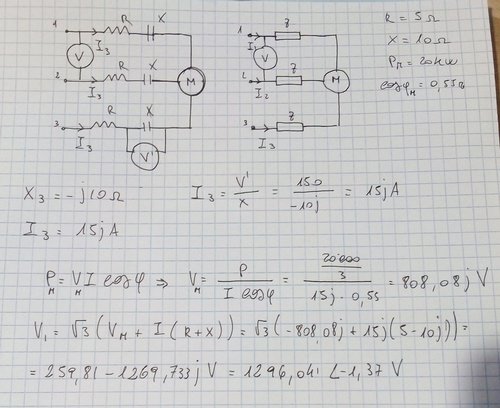 1 R X
I3
V
2 R X
I3
M
3 R X
I3
V'
1 z
I1
V
2 z
I2
M
3 z
I3
R = 5Ω
X = 10Ω
PM = 20kW
cosφM = 0,55
X3 = -j10Ω
I3 = V'/X = 150/-10j = 15jA
I3 = 15jA
PM = VM I cosφ ⇒ VM = P/(I cosφ) = (20'000/3)/(15j · 0,55) = 808,08j V
V1 = √3 (VM + I (R+X)) = √3 (-808,08j + 15j (5-10j)) =
= 259,81 - 1269,733j V = 1296,041 ∠-1,37 V